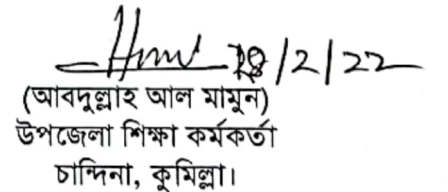 28/2/22
(আবদুল্লাহ আল মামুন)
উপজেলা শিক্ষা কর্মকর্তা
চান্দিনা, কুমিল্লা।